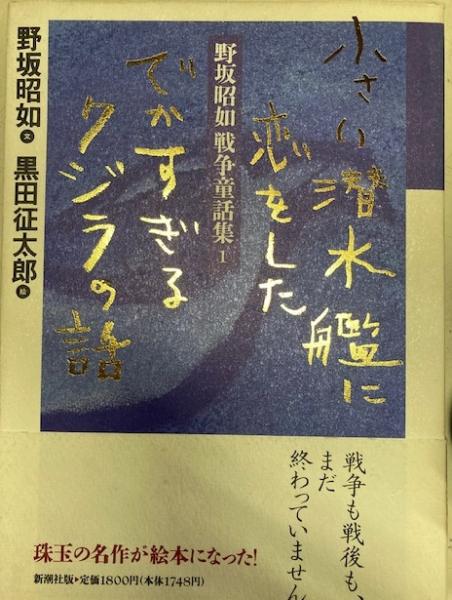 小さい潜水艦に
恋をした
でかすぎる
クジラの話
野坂昭如 戦争童話集1
野坂昭如 文 黒田征太郎 絵
戦争も戦後も、
まだ
終わっていません
珠玉の名作が絵本になった!
新潮社版▶定価1800円(本体1748円)